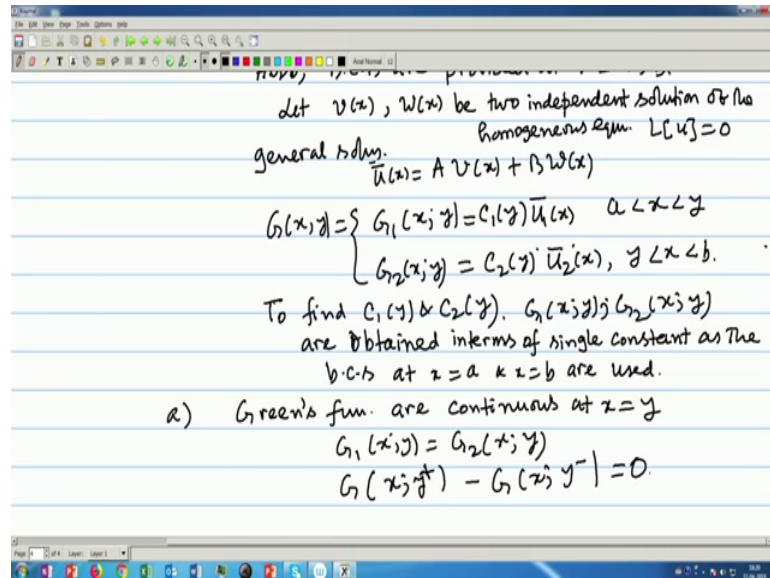 File Edit View Page Tools Options Help
Let v(x), w(x) be two independent solution of the
homogeneous eqn. L[u]=0
general soln.
ū(x) = A v(x) + B w(x)
G(x,y) = { G₁(x;y) = C₁(y) ū₁(x) a<x<y
G₂(x;y) = C₂(y) ū₂(x), y<x<b.
To find C₁(y) & C₂(y). G₁(x;y); G₂(x;y)
are obtained interms of single constant as the
b.c.s at x=a & x=b are used.
a) Green's fun. are continuous at x=y
G₁(x;y) = G₂(x;y)
G(x;y⁺) - G(x;y⁻)| = 0.